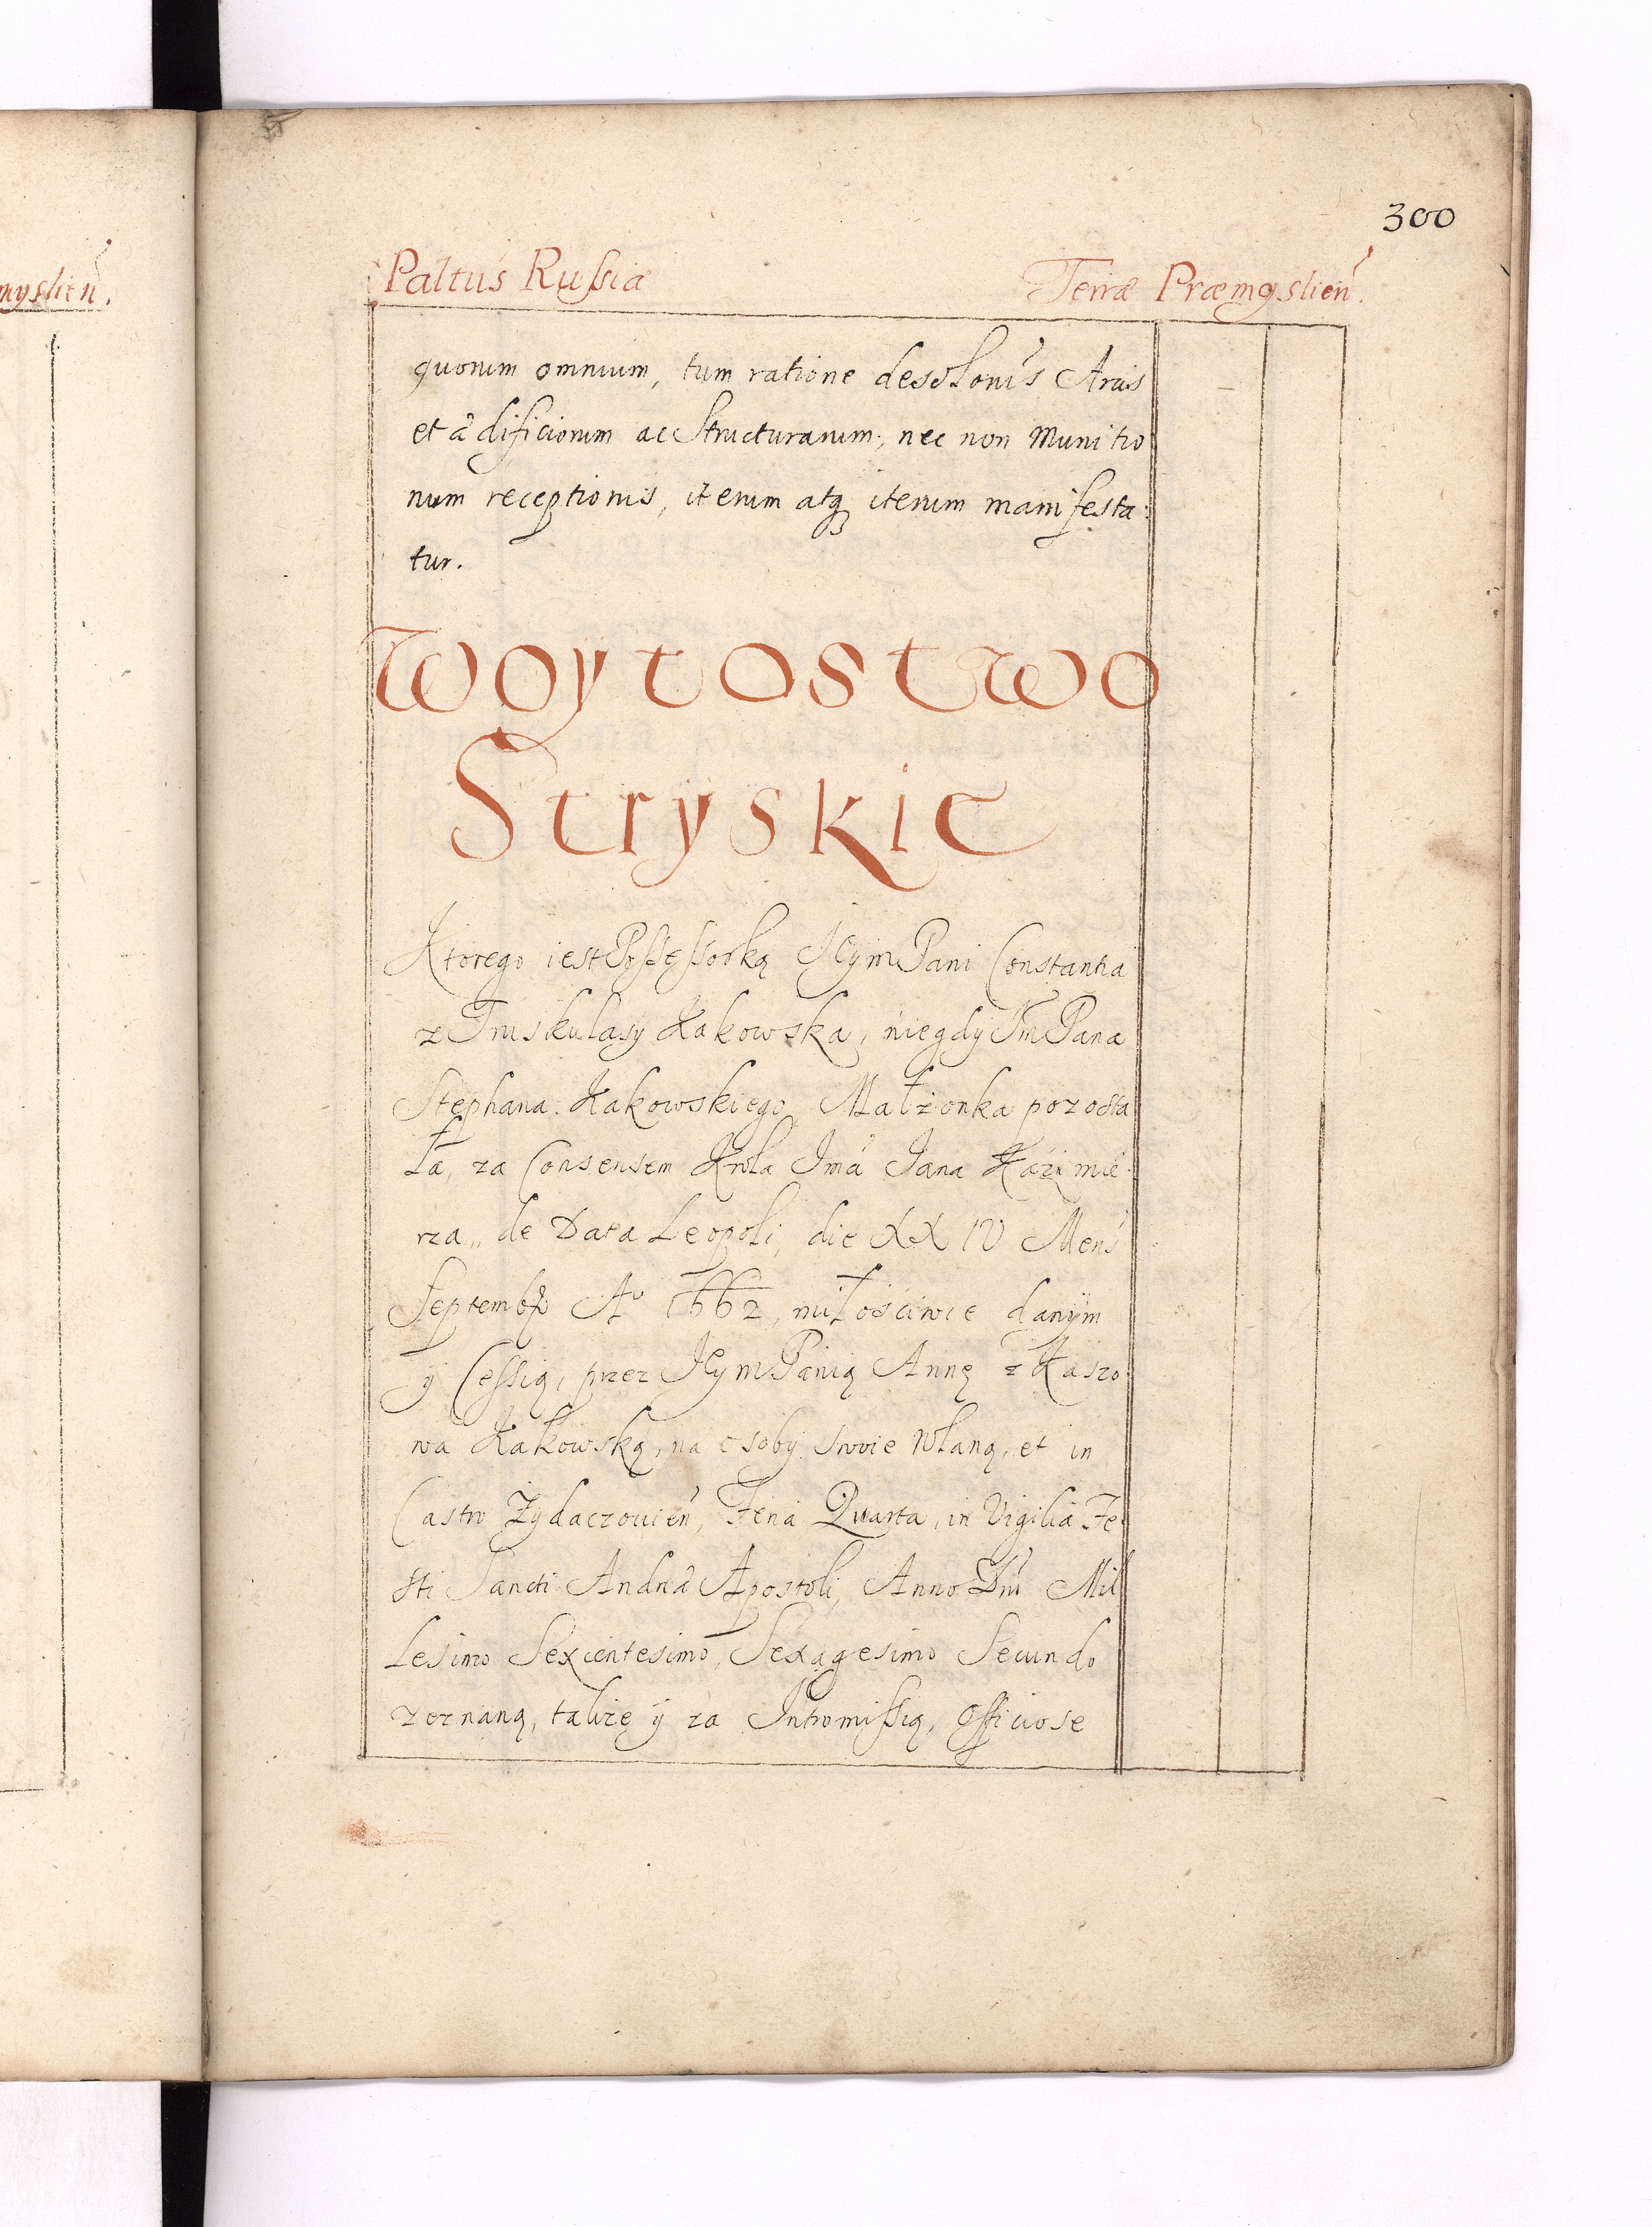 300
Paltus Russia Terræ Præmysslien.
myslien.
quorum omnium, tum ratione desolonis Arcis
et ædificiorum ac Structurarum, nec non Munitio
num receptionis, iterum atq iterum manifesta:
tur.
Woytostwo
Stryskie
Ktorego iest Possessorką JeymPani Constantia
z Truskulasy Kakowska, niegdy JmPana
Stephana Kakowskiego Małżonka pozosta
ła, za Consensem Krola Jmći Jana Kazimie
rza, de Data Leopoli, die XXIV Mens
Septembr Aº 1662, miłościwie danym
y Cessią, przez JeymPanią Annę z Kaszo
wa Kakowską, na osoby swoie wlaną, et in
Castro Zydaczovien, Feria Quarta, in Vigilia Fe
sti Sancti Andreæ Apostoli, Anno Dni Mil
lesimo Sexcentesimo Sexagesimo Secundo
zeznaną, także y za Intromissią, Officiose